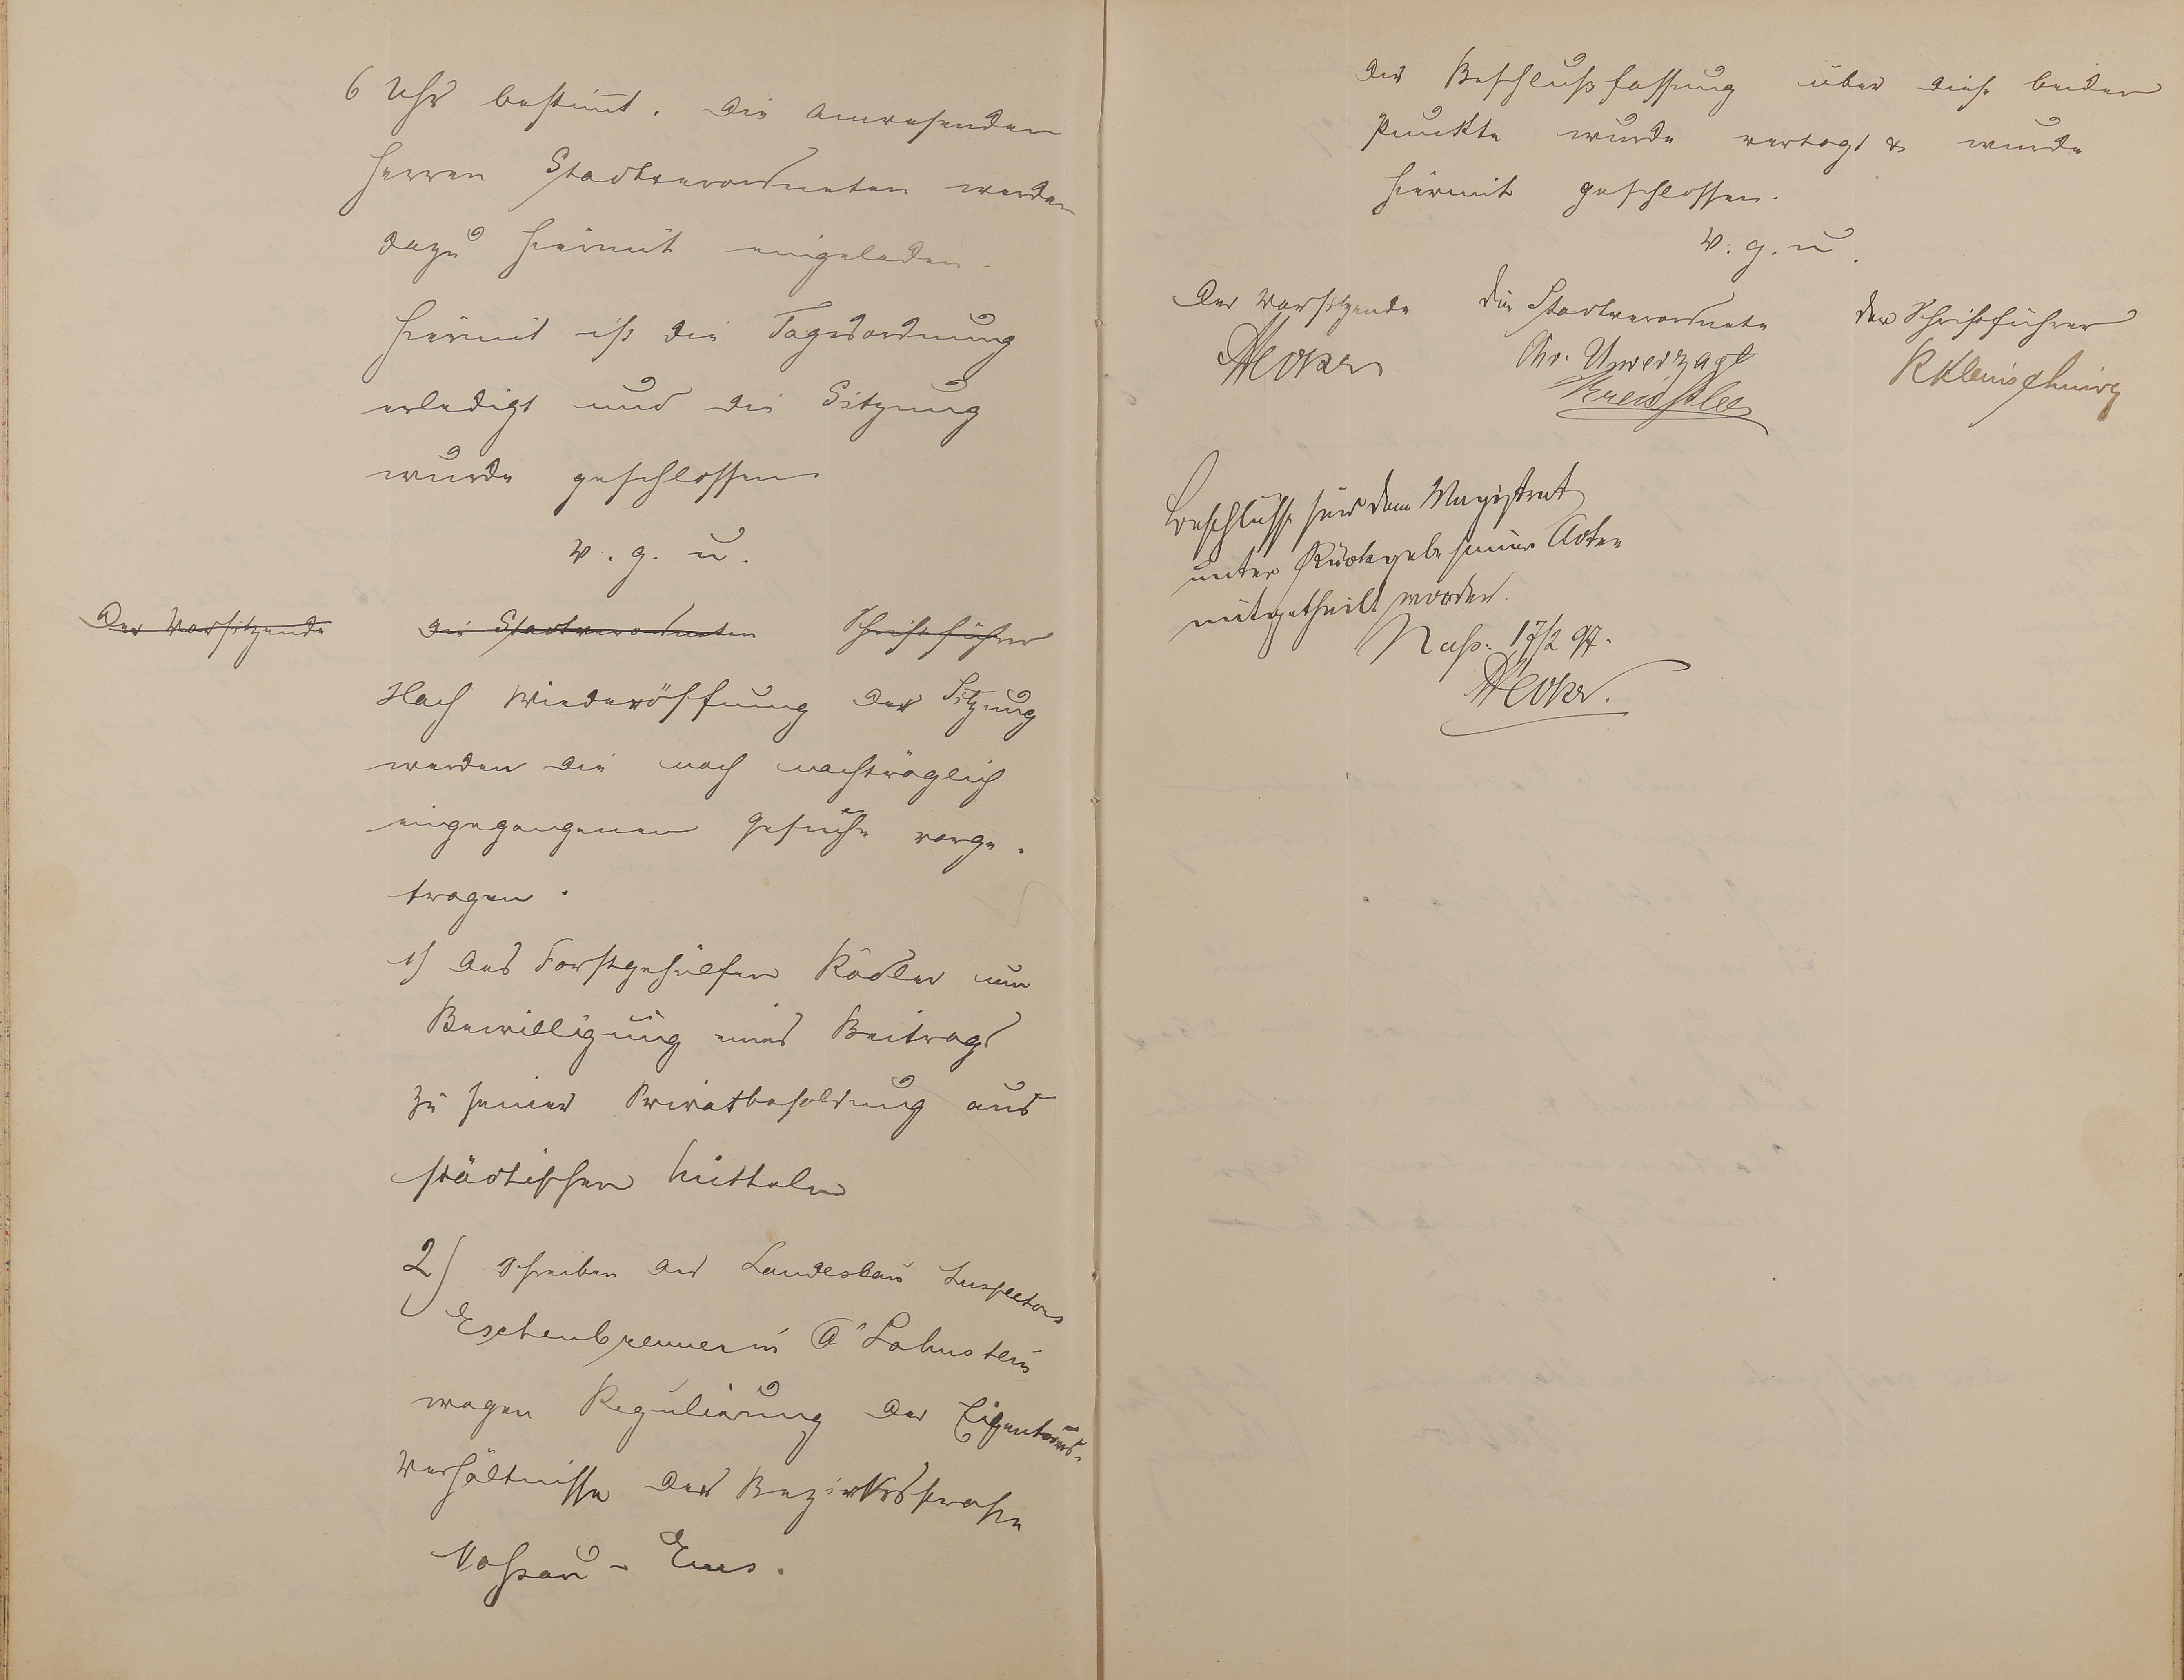 6 Uhr bestimt. Die Anwesenden
Herren Stadtverordneten werden
dazu hiermit eingeladen.
Hiermit ist die Tagesordnung
erledigt und die Sitzung
wurde geschlossen
v. g. u.
Der Vorsitzende die Stadtverordneten Schriftführer
Nach Wiederöffnung der Sitzung
werden die noch nachträglich
eingegangenen Gesuche vorge-
tragen.
1) des Forstgehülfen Rödler um
Bewilligung eines Beitrags
zu seiner Privatbesoldung aus
städtischen Mitteln
2) Schreiben des Landesbau Inspectors
Eschenbrenner in O'Lahnstein
wegen Regulierung der Eigentums-
verhältnisse der Bezirksstrasse
Nassau - Ems.
Die Beschlußfassung über diese beiden
Punkte wurde vertagt & wurde
hiermit geschlossen.
v. g. u.
Der Vorsitzende die Stadtverordnete der Schriftführer
Chr. Unverzagt R Kleinschmidt
Beschlüsse sind dem Magistrat
unter Rückgabe seiner Acten
mitgetheilt worden.
Nass. 17/2 97.